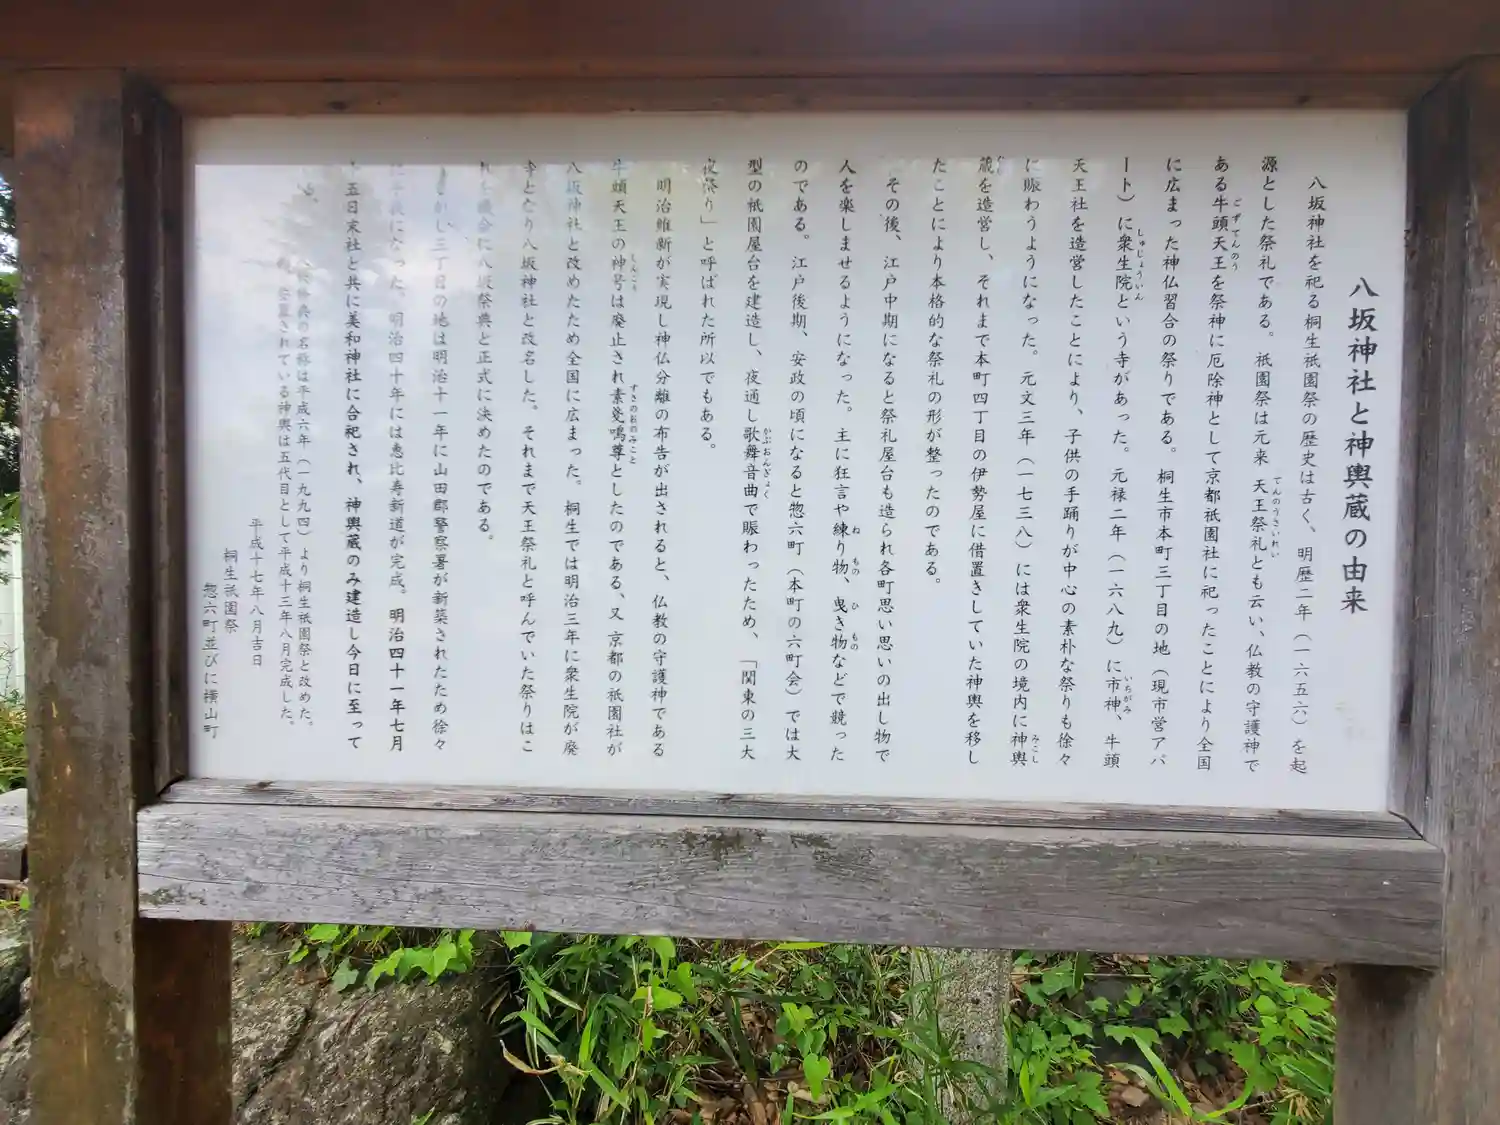 八坂神社と神輿蔵の由来
八坂神社を祀る桐生祇園祭の歴史は古く、明歴二年（一六五六）を起
源とした祭礼である。祇園祭は元来 天王祭礼とも云い、仏教の守護神で
てんのうさいれい
ある牛頭天王を祭神に厄除神として京都祇園社に祀ったことにより全国
ごずてんのう
に広まった神仏習合の祭りである。桐生市本町三丁目の地（現市営アパ
ート）に衆生院という寺があった。元禄二年（一六八九）に市神、牛頭
しゅじょういん
いちがみ
天王社を造営したことにより、子供の手踊りが中心の素朴な祭りも徐々
に賑わうようになった。元文三年（一七三八）には衆生院の境内に神輿
みこし
蔵を造営し、それまで本町四丁目の伊勢屋に借置きしていた神輿を移し
たことにより本格的な祭礼の形が整ったのである。
その後、江戸中期になると祭礼屋台も造られ各町思い思いの出し物で
人を楽しませるようになった。主に狂言や練り物、曳き物などで競った
ね もの ひ もの
のである。江戸後期、安政の頃になると惣六町（本町の六町会）では大
型の祇園屋台を建造し、夜通し歌舞音曲で賑わったため、「関東の三大
かぶおんぎょく
夜祭り」と呼ばれた所以でもある。
明治維新が実現し神仏分離の布告が出されると、仏教の守護神である
牛頭天王の神号は廃止され素戔嗚尊としたのである、又 京都の祇園社が
しんごう
すさのおのみこと
八坂神社と改めたため全国に広まった。桐生では明治三年に衆生院が廃
寺となり八坂神社と改名した。それまで天王祭礼と呼んでいた祭りはこ
れを機会に八坂祭典と正式に決めたのである。
しかし三丁目の地は明治十一年に山田郡警察署が新築されたため徐々
になった。明治四十年には恵比寿新道が完成。明治四十一年七月
五日末社と共に美和神社に合祀され、神輿蔵のみ建造し今日に至って
る。
の名称は平成六年（一九九四）より桐生祇園祭と改めた。
されている神輿は五代目として平成十三年八月完成した。
平成十七年八月吉日
桐生祇園祭
惣六町並びに横山町